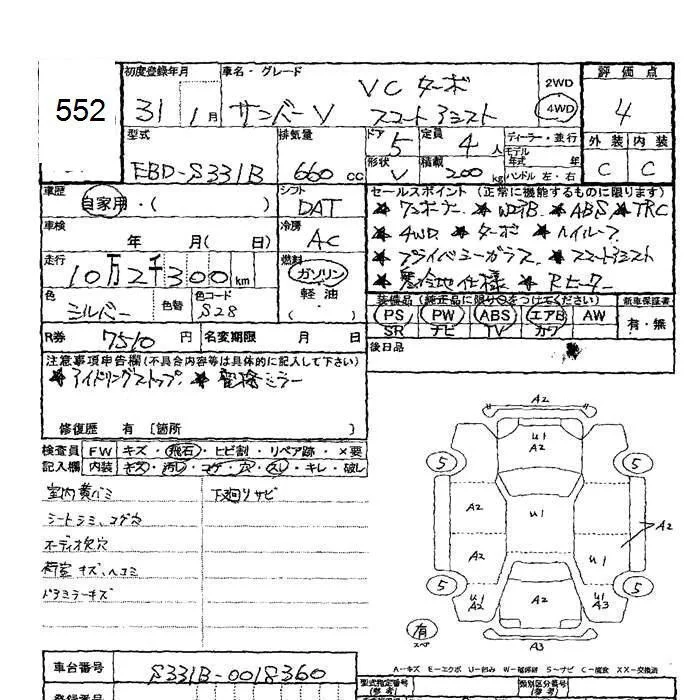 552
初度登録年月 車名・グレード 評価点
31 1月 サンバーV VCターボ スマートアシスト 2WD 4WD 4
型式 排気量 ドア 5 定員 4人 ディーラー・並行 外装 内装
EBD-S331B 660cc 形状 V 積載 200kg モデル年式 年 ハンドル 左・右 C C
車歴 自家用・( ) シフト DAT
車検 年 月( 日) 冷房 AC
走行 10万2千300km 燃料 ガソリン 軽・油 ( )
色 シルバー 色替 色コード S28
セールスポイント (正常に機能するものに限ります)
★ワンオーナー ★WエアB ★ABS ★TRC
★4WD ★ターボ ★ハイルーフ
★プライバシーガラス ★スマートアシスト
★寒冷地仕様 ★Rヒーター
装備品 (純正品に限り○をつけてください) 新車保証書
PS PW ABS エアB AW 有・無
SR ナビ TV カワ
後日品
R券 7510円 名変期限 月 日
注意事項申告欄(不具合内容等は具体的に記入して下さい)
★アイドリングストップ ★電格ミラー
修復歴 有 〔箇所 〕
検査員 FW キズ・飛石・ヒビ割・リペア跡・×要
記入欄 内装 キズ・汚レ・コゲ・穴・スレ・キレ・破レ
室内黄バミ 下廻リサビ
シートシミ、コゲ穴
オーディオ欠穴
荷室キズ、ヘコミ
ドアミラーキズ
A2
U1
A2
5
5
A2
U1
A2
A2
U1
U1
A2
A2
U1
A3
5
5
有
スペア
A3
A-キズ E-エクボ U-凹み W-補修跡 S-サビ C-腐食 XX-交換済
車台番号 S331B-0018360
型式指定番号 (参考) 類別区分番号 (参考)
登録番号